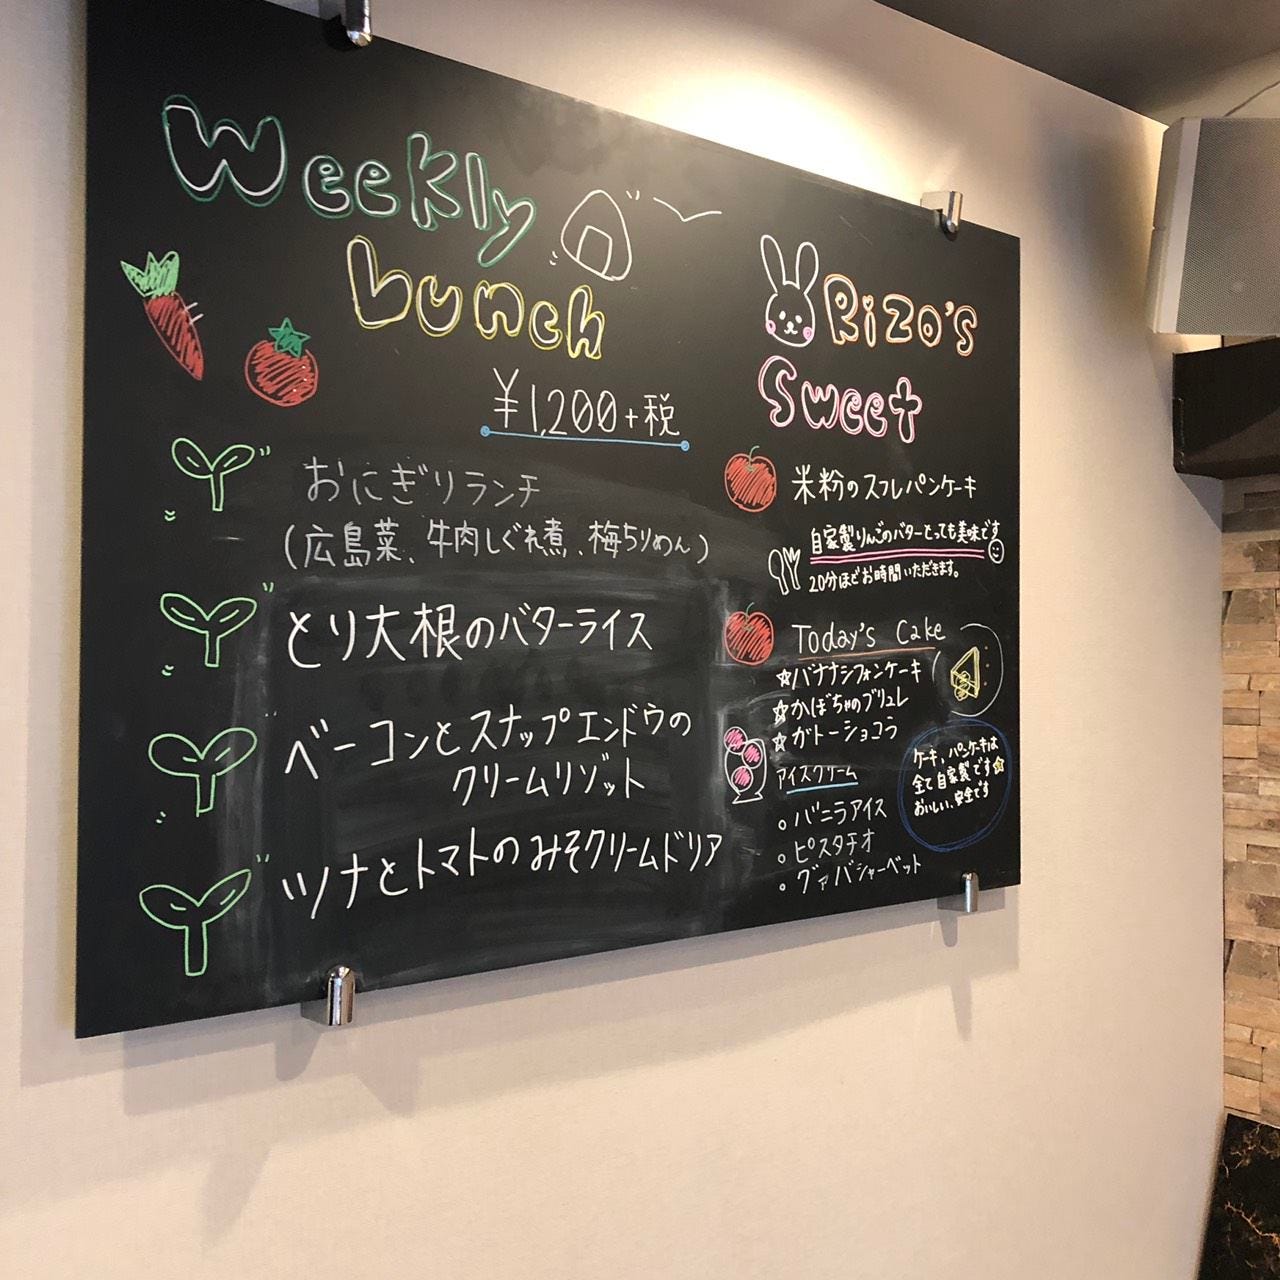 Weekly
Lunch
¥1,200+税
おにぎりランチ
(広島菜、牛肉しぐれ煮、梅ちりめん)
とり大根のバターライス
ベーコンとスナップエンドウの
クリームリゾット
ツナとトマトのみそクリームドリア
Rizo's
Sweet
米粉のスフレパンケーキ
自家製りんごのバターとっても美味です
20分ほどお時間いただきます。
Today's Cake
☆バナナシフォンケーキ
☆かぼちゃのブリュレ
☆ガトーショコラ
ケーキ、パンケーキは
全て自家製です☆
おいしい、安全です
アイスクリーム
○バニラアイス
○ピスタチオ
○グァバシャーベット